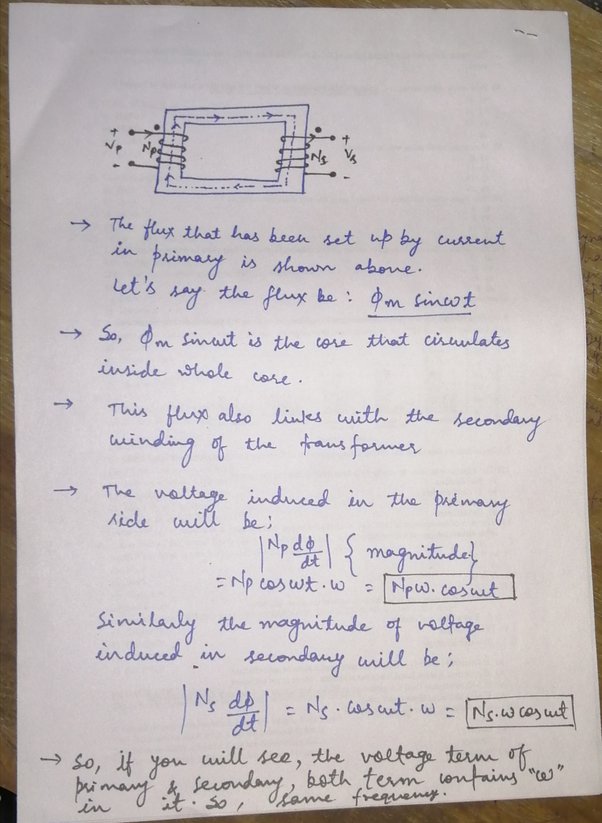 + Vp - Np
Ns + Vs -
→ The flux that has been set up by current
in primary is shown above.
Let's say the flux be : ϕm sinωt
→ So, ϕm sinωt is the core that circulates
inside whole core.
→ This flux also links with the secondary
winding of the transformer
→ The voltage induced in the primary
side will be;
|Np dϕ/dt| { magnitude}
= Np cosωt · ω = Npω. cosωt
Similarly the magnitude of voltage
induced in secondary will be;
|Ns dϕ/dt| = Ns · cosωt · ω = Ns.ω cosωt
→ So, if you will see, the voltage term of
primary & secondary, both term contains "ω"
in it. So, same frequency.